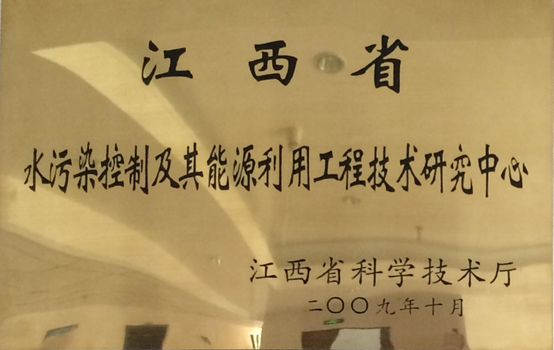 江西省
水污染控制及其能源利用工程技术研究中心
江西省科学技术厅
二〇〇九年十月